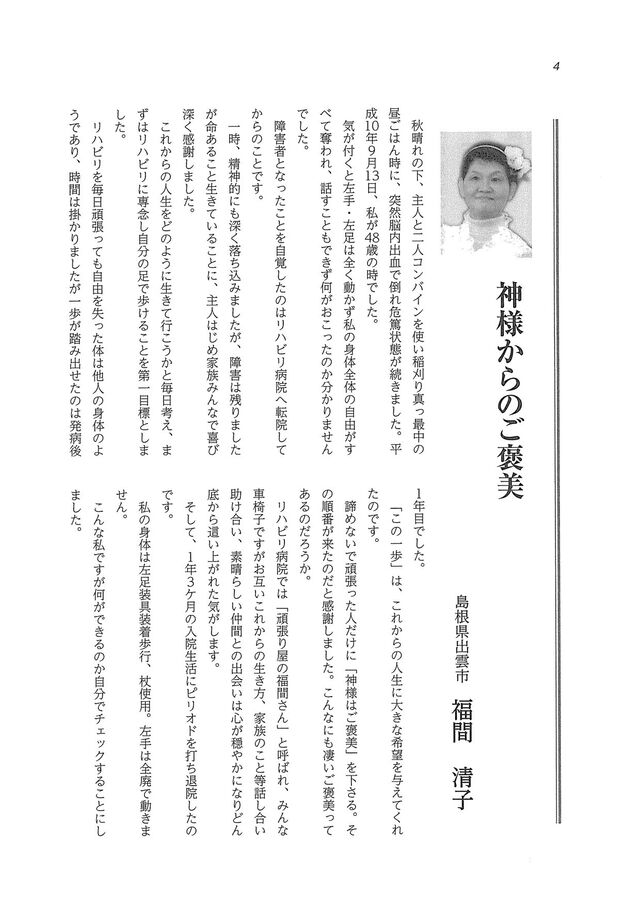 4
神様からのご褒美
島根県出雲市　福間　清子
　秋晴れの下、主人と二人コンバインを使い稲刈り真っ最中の
昼ごはん時に、突然脳内出血で倒れ危篤状態が続きました。平
成10年９月13日、私が48歳の時でした。
　気が付くと左手・左足は全く動かず私の身体全体の自由がす
べて奪われ、話すこともできず何がおこったのか分かりません
でした。
　障害者となったことを自覚したのはリハビリ病院へ転院して
からのことです。
　一時、精神的にも深く落ち込みましたが、障害は残りました
が命あること生きていることに、主人はじめ家族みんなで喜び
深く感謝しました。
　これからの人生をどのように生きて行こうかと毎日考え、ま
ずはリハビリに専念し自分の足で歩けることを第一目標としま
した。
　リハビリを毎日頑張っても自由を失った体は他人の身体のよ
うであり、時間は掛かりましたが一歩が踏み出せたのは発病後
１年目でした。
　「この一歩」は、これからの人生に大きな希望を与えてくれ
たのです。
　諦めないで頑張った人だけに「神様はご褒美」を下さる。そ
の順番が来たのだと感謝しました。こんなにも凄いご褒美って
あるのだろうか。
　リハビリ病院では「頑張り屋の福間さん」と呼ばれ、みんな
車椅子ですがお互いこれからの生き方、家族のこと等話し合い
助け合い、素晴らしい仲間との出会いは心が穏やかになりどん
底から這い上がれた気がします。
　そして、１年３ケ月の入院生活にピリオドを打ち退院したの
です。
　私の身体は左足装具装着歩行、杖使用。左手は全廃で動きま
せん。
　こんな私ですが何ができるのか自分でチェックすることにし
ました。